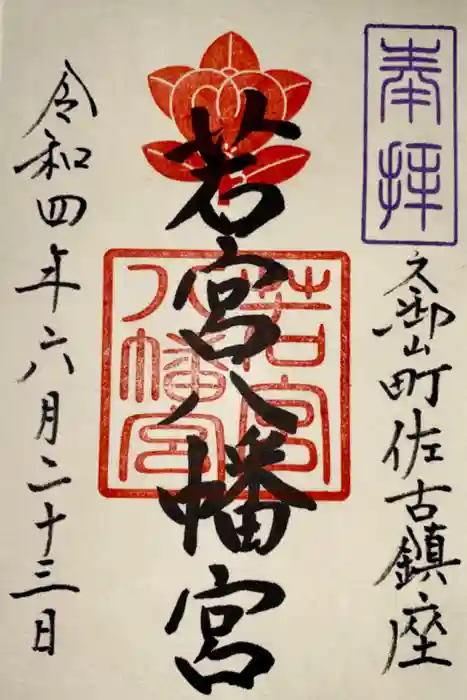 奉拝
久御山町佐古鎮座
若宮八幡宮
若宮
八幡宮
令和四年六月二十三日